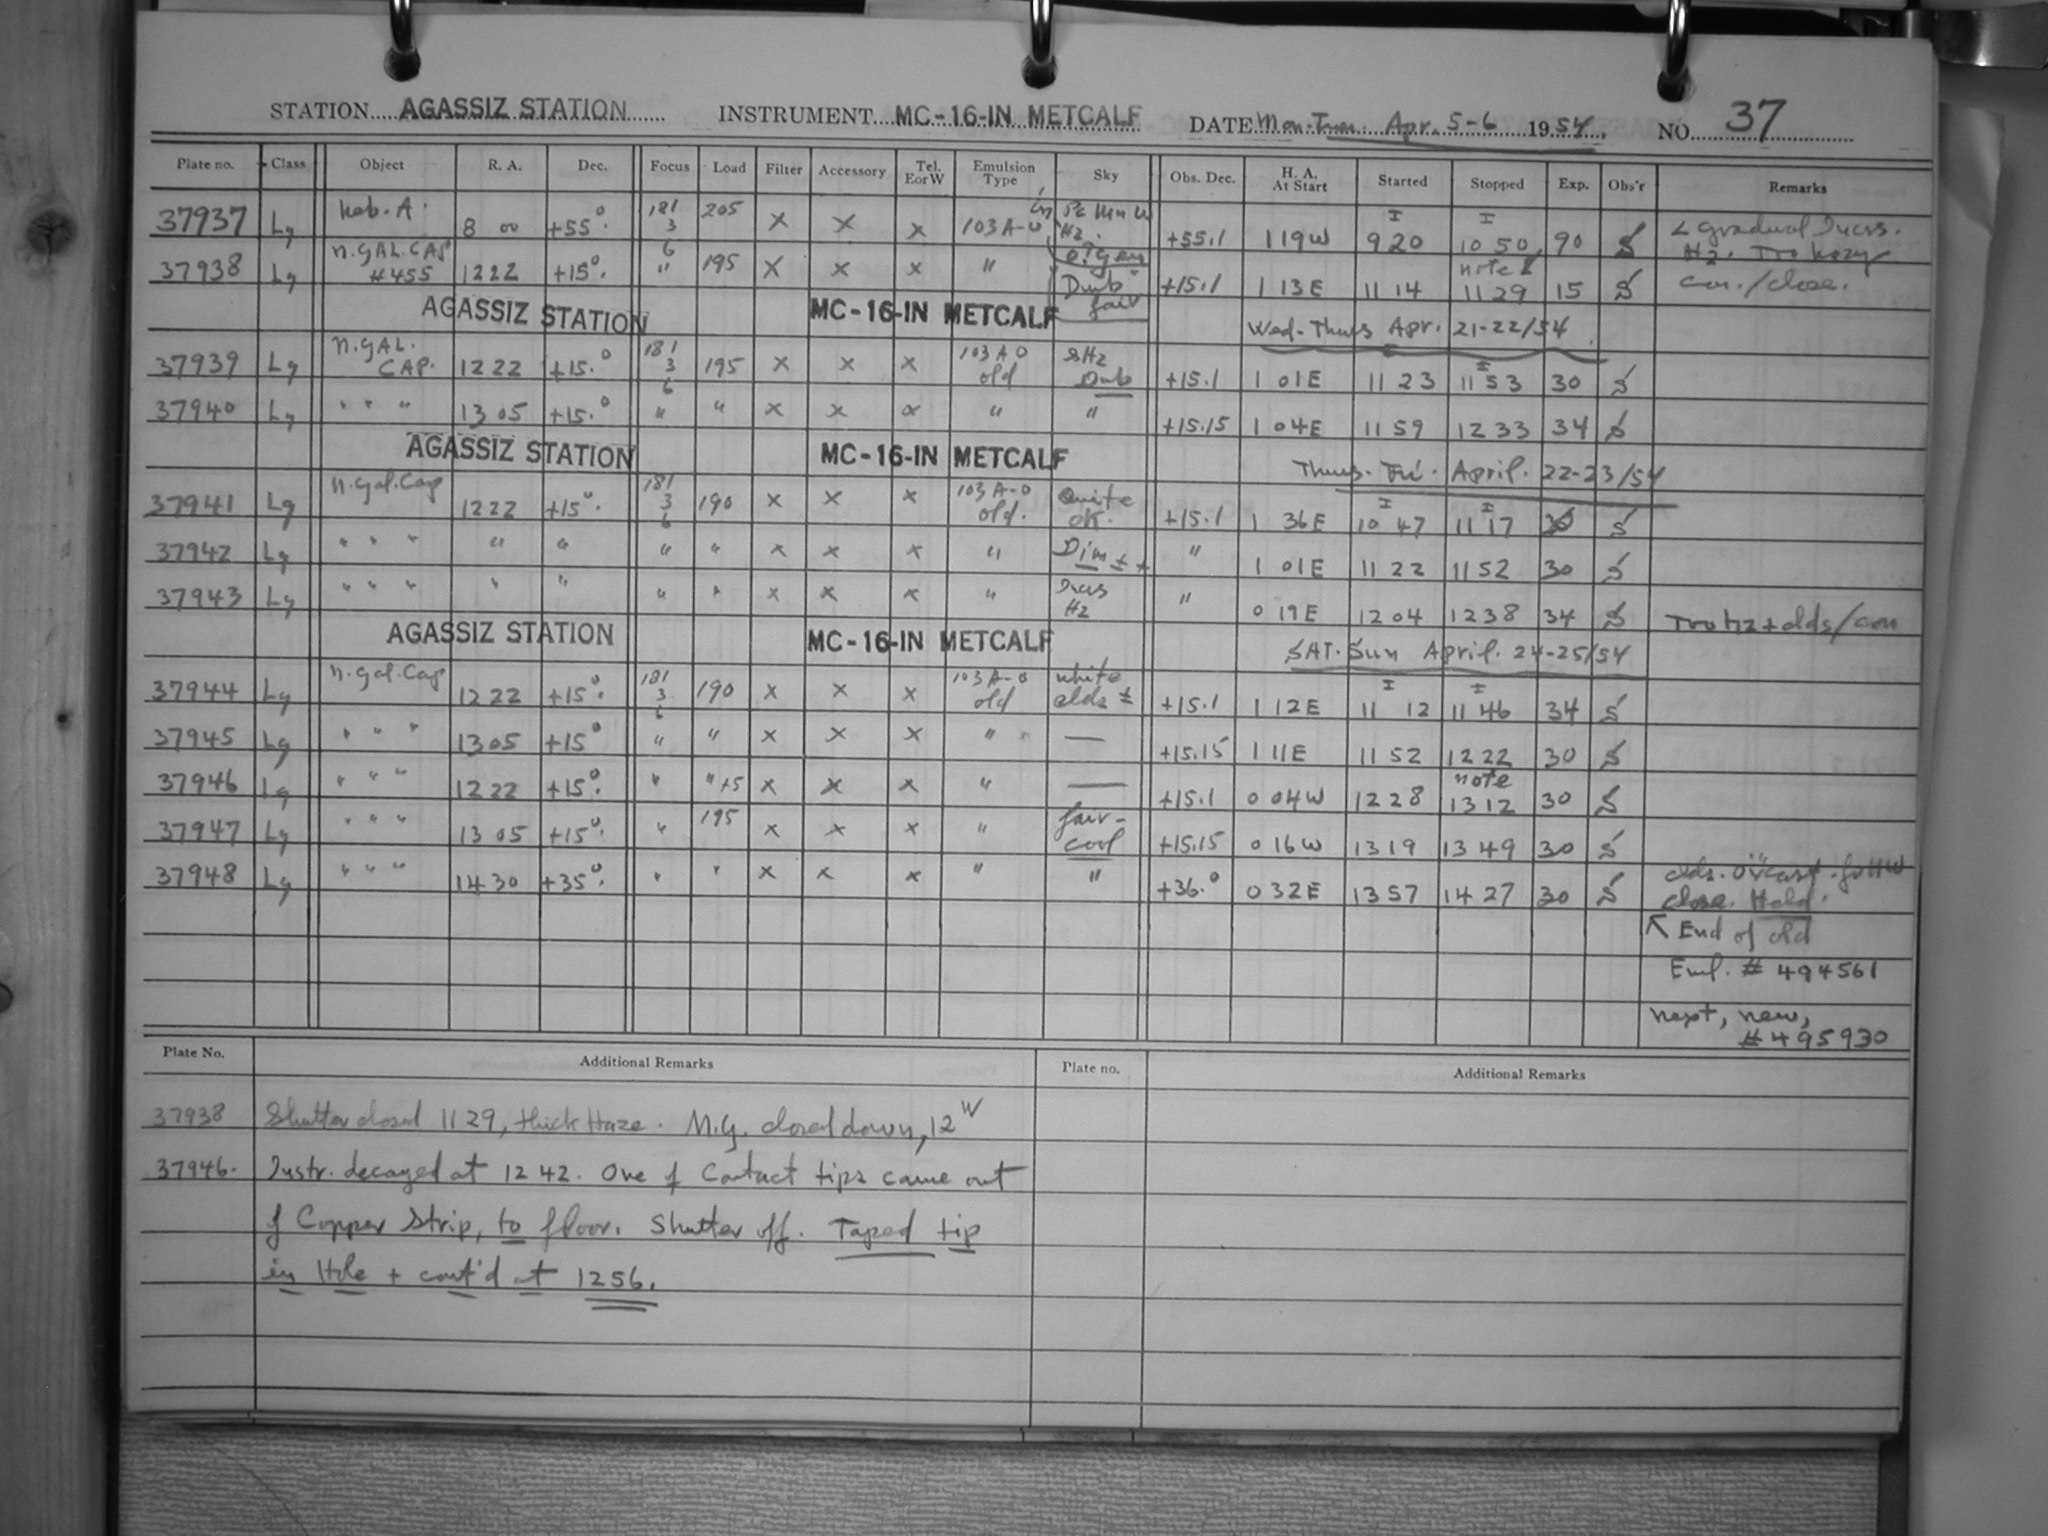 STATION AGASSIZ STATION INSTRUMENT MC-16-IN METCALF DATE Mon-Tues. Apr. 5-6 1954. NO. 37
Plate no. Class Object R. A. Dec. Focus Load Filter Accessory Tel. E or W Emulsion Type Sky Obs. Dec. H. A. At Start Started Stopped Exp. Obs'r Remarks
37937 Lg 8 00 +55°. 181 3 6 205 X X X 103A-O Hz. +55.1 1 19W 9 20 I 10 50 I 90 S < gradual Incrs. Hz. Too hazy
37938 Lg N.GAL.CAP #455 12 22 +15°. " 195 X X X " fair +15.1 1 13E 11 14 note 11 29 15 S con./close.
AGASSIZ STATION MC-16-IN METCALF Wed-Thurs Apr. 21-22/54
37939 Lg N.GAL. CAP. 12 22 +15.° 181 3 6 195 X X X 103A O old SHz +15.1 1 01E 11 23 11 53 I 30 S
37940 Lg " " " 13 05 +15.° " " X X X " " +15.15 1 04E 11 59 12 33 34 S
AGASSIZ STATION MC-16-IN METCALF Thurs-Fri. April. 22-23/54
37941 Lg N.gal.Cap 12 22 +15°. 181 3 6 190 X X X 103A-O old. Quite ok. +15.1 1 36E 10 47 I 11 17 I 30 S
37942 Lg " " " " " " " X X X " Dim ± + " 1 01E 11 22 11 52 30 S
37943 Lg " " " " " " " X X X " Incrs Hz " 0 19E 12 04 12 38 34 S Too hz + clds/con
AGASSIZ STATION MC-16-IN METCALF SAT-Sun April. 24-25/54
37944 Lg N.gal.Cap 12 22 +15°. 181 3 6 190 X X X 103A-O old white clds ± +15.1 1 12E 11 12 I 11 46 I 34 S
37945 Lg " " " 13 05 +15° " " X X X " — +15.15 1 11E 11 52 12 22 30 S
37946 Lg " " " 12 22 +15°. " "+5 X X X " — +15.1 0 04W 12 28 note 13 12 30 S
37947 Lg " " " 13 05 +15°. " 195 X X X " fair-cool +15.15 0 16W 13 19 13 49 30 S
37948 Lg " " " 14 30 +35°. " " X X X " " +36.° 0 32E 13 57 14 27 30 S clds. close. Held.
↖ End of old
Eml. # 494561
next, new,
# 495930
Plate No. Additional Remarks Plate no. Additional Remarks
37938 Shutter closed 11 29, thick Haze. M.G. closed down, 12 W
37946. Instr. decayed at 12 42. One of Contact tips came out
of Copper Strip, to floor. Shutter off. Taped tip
in Hole + cont'd at 12 56.